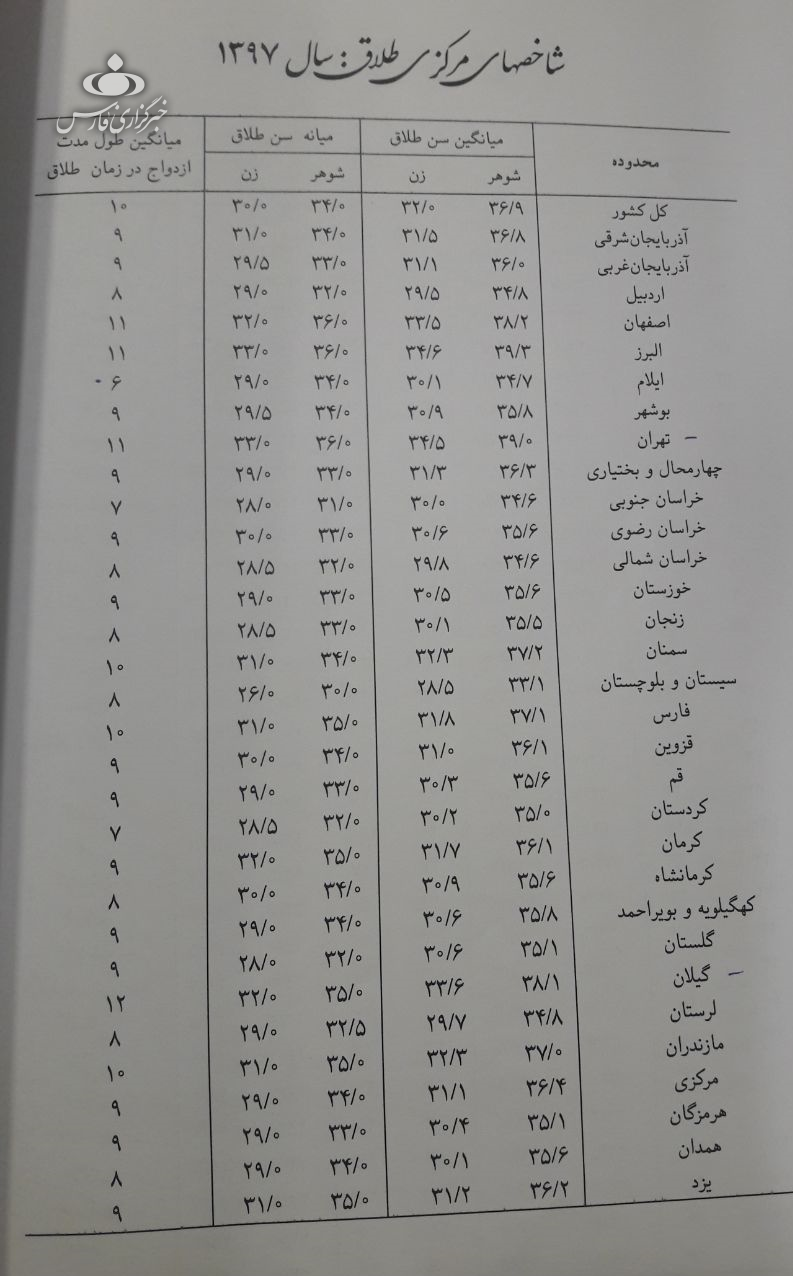 شاخصهای مرکزی طلاق: سال ۱۳۹۷
خبرگزاری فارس
محدوده میانگین سن طلاق میانه سن طلاق میانگین طول مدت ازدواج در زمان طلاق
شوهر زن شوهر زن
کل کشور ۳۶/۹ ۳۲/۰ ۳۴/۰ ۳۰/۰ ۱۰
آذربایجان‌شرقی ۳۶/۸ ۳۱/۵ ۳۴/۰ ۳۱/۰ ۹
آذربایجان‌غربی ۳۶/۰ ۳۱/۱ ۳۳/۰ ۲۹/۵ ۹
اردبیل ۳۴/۸ ۲۹/۵ ۳۲/۰ ۲۹/۰ ۸
اصفهان ۳۸/۲ ۳۳/۵ ۳۶/۰ ۳۲/۰ ۱۱
البرز ۳۹/۳ ۳۴/۶ ۳۶/۰ ۳۳/۰ ۱۱
ایلام ۳۴/۷ ۳۰/۱ ۳۴/۰ ۲۹/۰ ۶
بوشهر ۳۵/۸ ۳۰/۹ ۳۴/۰ ۲۹/۵ ۹
تهران ۳۹/۰ ۳۴/۵ ۳۶/۰ ۳۳/۰ ۱۱
چهارمحال و بختیاری ۳۶/۳ ۳۱/۳ ۳۳/۰ ۲۹/۰ ۹
خراسان جنوبی ۳۴/۶ ۳۰/۰ ۳۱/۰ ۲۸/۰ ۷
خراسان رضوی ۳۵/۶ ۳۰/۶ ۳۳/۰ ۳۰/۰ ۹
خراسان شمالی ۳۴/۶ ۲۹/۸ ۳۲/۰ ۲۸/۵ ۸
خوزستان ۳۵/۶ ۳۰/۵ ۳۳/۰ ۲۹/۰ ۹
زنجان ۳۵/۵ ۳۰/۱ ۳۳/۰ ۲۸/۵ ۸
سمنان ۳۷/۲ ۳۲/۳ ۳۴/۰ ۳۱/۰ ۱۰
سیستان و بلوچستان ۳۳/۱ ۲۸/۵ ۳۰/۰ ۲۶/۰ ۸
فارس ۳۷/۱ ۳۱/۸ ۳۵/۰ ۳۱/۰ ۱۰
قزوین ۳۶/۱ ۳۱/۰ ۳۴/۰ ۳۰/۰ ۹
قم ۳۵/۶ ۳۰/۳ ۳۳/۰ ۲۹/۰ ۹
کردستان ۳۵/۰ ۳۰/۲ ۳۲/۰ ۲۸/۵ ۷
کرمان ۳۶/۱ ۳۱/۷ ۳۵/۰ ۳۲/۰ ۹
کرمانشاه ۳۵/۶ ۳۰/۹ ۳۴/۰ ۳۰/۰ ۸
کهگیلویه و بویراحمد ۳۵/۸ ۳۰/۶ ۳۴/۰ ۲۹/۰ ۹
گلستان ۳۵/۱ ۳۰/۶ ۳۲/۰ ۲۸/۰ ۹
گیلان ۳۸/۱ ۳۳/۶ ۳۵/۰ ۳۲/۰ ۱۲
لرستان ۳۴/۸ ۲۹/۷ ۳۲/۵ ۲۹/۰ ۸
مازندران ۳۷/۰ ۳۲/۳ ۳۵/۰ ۳۱/۰ ۱۰
مرکزی ۳۶/۴ ۳۱/۱ ۳۴/۰ ۲۹/۰ ۹
هرمزگان ۳۵/۱ ۳۰/۴ ۳۳/۰ ۲۹/۰ ۹
همدان ۳۵/۶ ۳۰/۱ ۳۴/۰ ۲۹/۰ ۸
یزد ۳۶/۲ ۳۱/۲ ۳۵/۰ ۳۱/۰ ۹